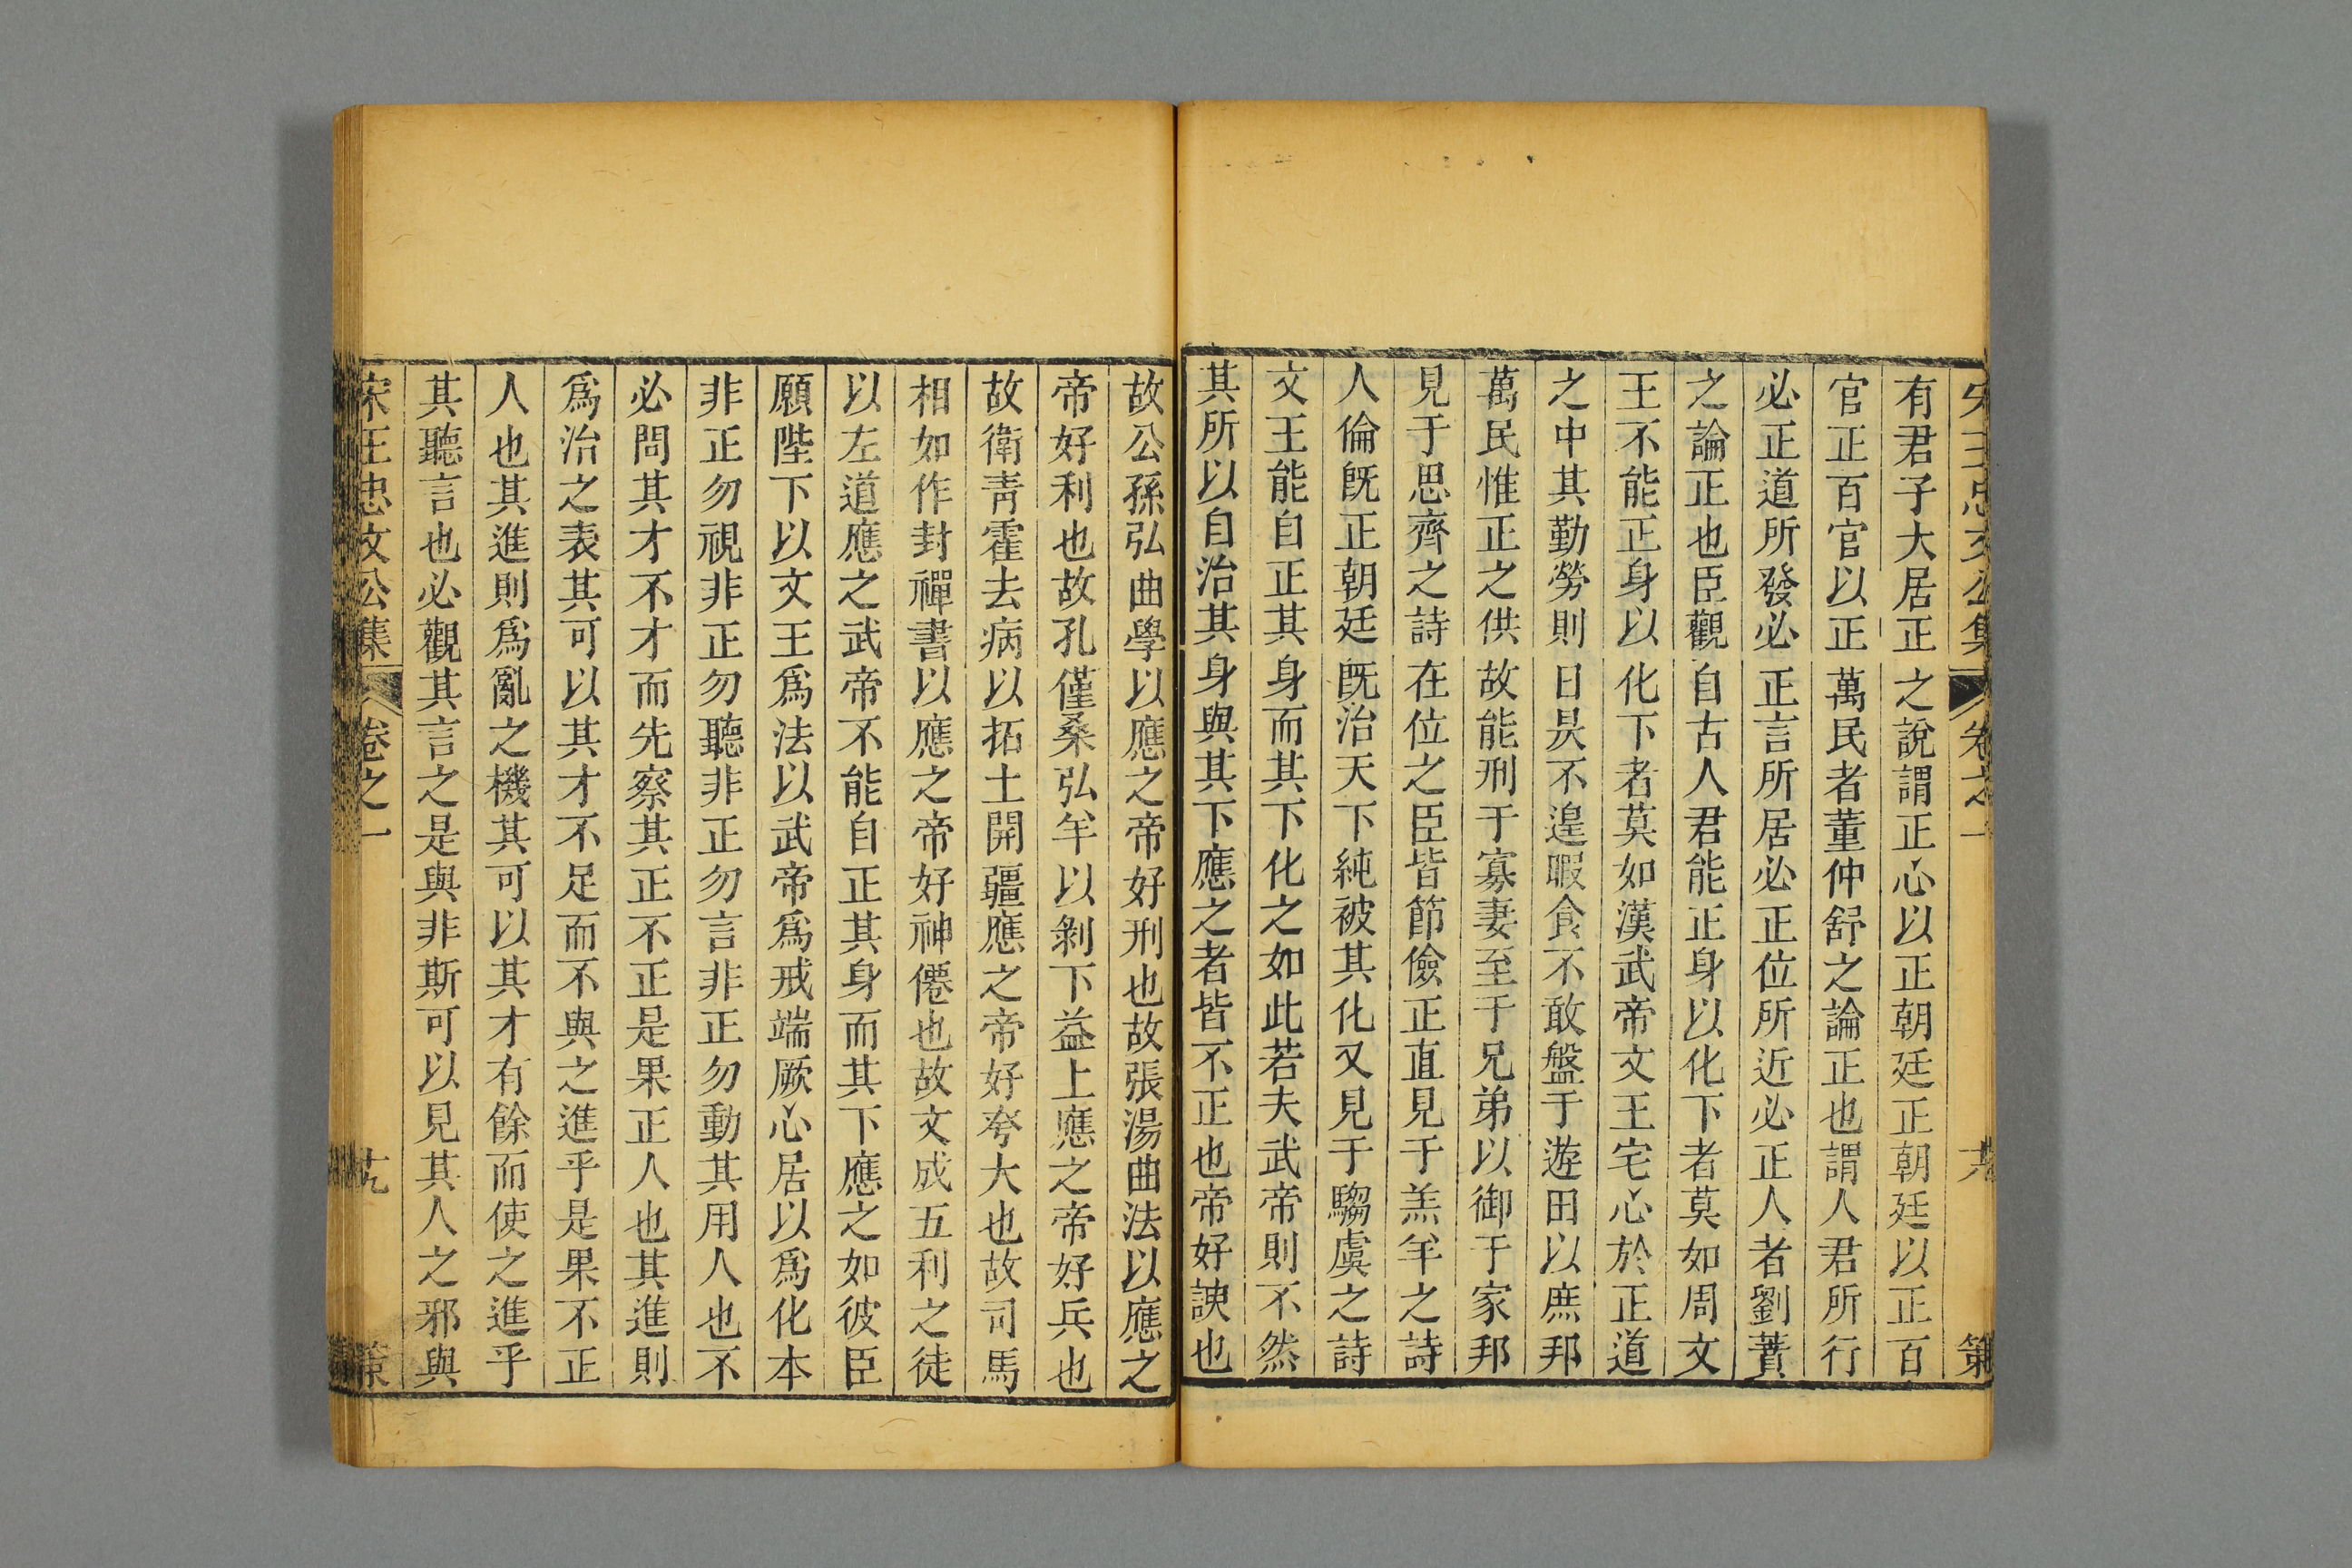 宋王忠文公集 卷之一 策
有君子大居正之說謂正心以正朝廷正朝廷以正百
官正百官以正萬民者董仲舒之論正也謂人君所行
必正道所發必正言所居必正位所近必正人者劉蕡
之論正也臣觀自古人君能正身以化下者莫如周文
王不能正身以化下者莫如漢武帝文王宅心於正道
之中其勤勞則日昃不遑暇食不敢盤于遊田以庶邦
萬民惟正之供故能刑于寡妻至于兄弟以御于家邦
見于思齊之詩在位之臣皆節儉正直見于羔羊之詩
人倫旣正朝廷旣治天下純被其化又見于騶虞之詩
文王能自正其身而其下化之如此若夫武帝則不然
其所以自治其身與其下應之者皆不正也帝好諛也
故公孫弘曲學以應之帝好刑也故張湯曲法以應之
帝好利也故孔僅桑弘羊以剝下益上應之帝好兵也
故衛靑霍去病以拓土開疆應之帝好夸大也故司馬
相如作封禪書以應之帝好神僊也故文成五利之徒
以左道應之武帝不能自正其身而其下應之如彼臣
願陛下以文王爲法以武帝爲戒端厥心居以爲化本
非正勿視非正勿聽非正勿言非正勿動其用人也不
必問其才不才而先察其正不正是果正人也其進則
爲治之表其可以其才不足而不與之進乎是果不正
人也其進則爲亂之機其可以其才有餘而使之進乎
其聽言也必觀其言之是與非斯可以見其人之邪與
宋王忠文公集 卷之一 策